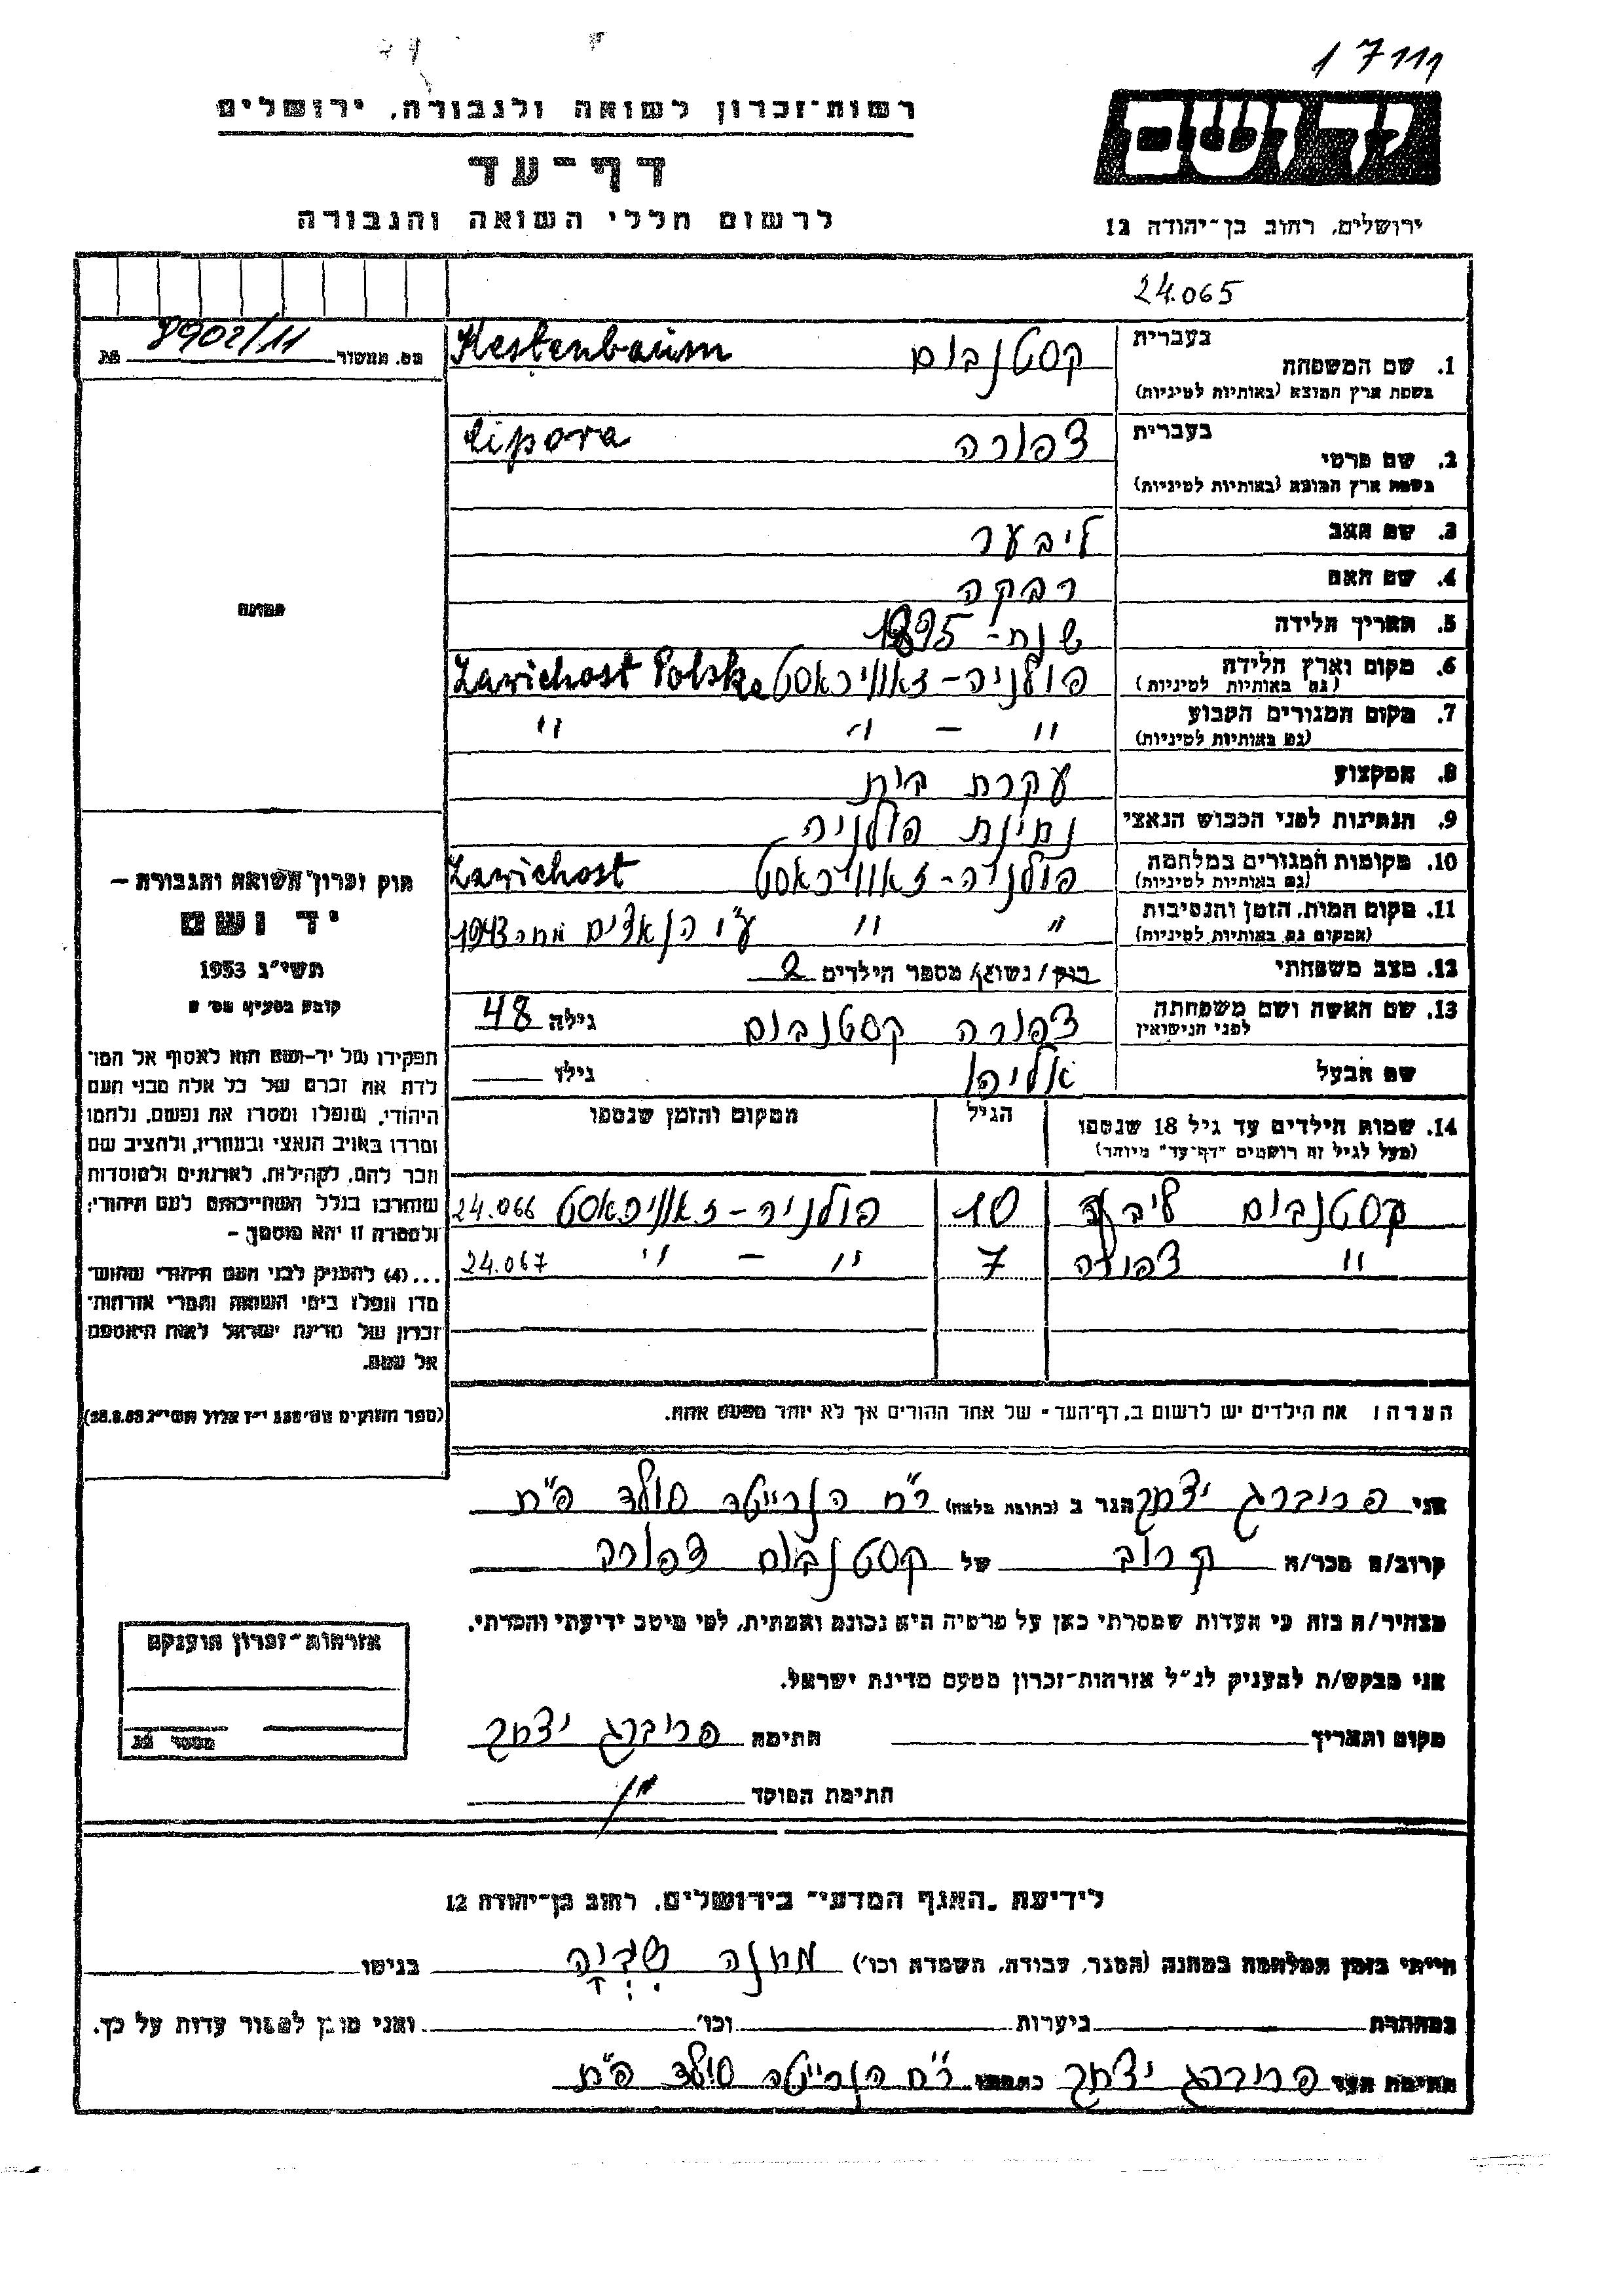 17111
יד ושם
רשות־זכרון לשואה ולגבורה, ירושלים
דף־עד
לרשום חללי השואה והגבורה
ירושלים, רחוב בן־יהודה 12
24.065
מס. ממשור 8902/11 №
1. שם המשפחה בעברית קסטנבוים Kestenbaum
בשפת ארץ המוצא (באותיות לטיניות)
2. שם פרטי בעברית צפורה Cipora
בשפת ארץ המוצא (באותיות לטיניות)
3. שם האב ליבער
4. שם האם רבקה
5. תאריך הלידה שנת- 1895
6. מקום וארץ הלידה פולניה-זאוויכאסט Zawichost Polska
(גם באותיות לטיניות)
7. מקום המגורים הקבוע " — " "
(גם באותיות לטיניות)
8. המקצוע עקרת בית
9. הנתינות לפני הכבוש הנאצי נתינת פולניה
10. מקומות המגורים במלחמה פולניה-זאוויכאסט Zawichost
(גם באותיות לטיניות)
11. מקום המות, הזמן והנסיבות " " ע"י הנאצים מתה 1943
(המקום גם באותיות לטיניות)
12. מצב משפחתי רווק/נשוי/ מספר הילדים 2
13. שם האשה ושם משפחתה צפורה קסטנבוים גילה 48
לפני הנישואין
שם הבעל אליהו גילו
14. שמות הילדים עד גיל 18 שנספו הגיל המקום והזמן שנספו
(מעל לגיל זה רושמים "דף־עד" מיוחד)
קסטנבוים 10 פולניה-זאוויכאסט 24.066
" צפורה 7 " — " 24.067
הערה: את הילדים יש לרשום ב.דף־העד" של אחד ההורים אך לא יותר מפעם אחת.
תמונה
חוק זכרון השואה והגבורה —
יד ושם
תשי"ג 1953
קובע בסעיף מס'
תפקידו של יד-ושם הוא לאסוף אל המו־
לדת את זכרם של כל אלה מבני העם
היהודי, שנפלו ומסרו את נפשם, נלחמו
ומרדו באויב הנאצי ובעוזריו, ולהציב שם
וזכר להם, לקהילות, לארגונים ולמוסדות
שנחרבו בגלל השתייכותם לעם היהודי;
ולמטרה זו יהא מוסמך, —
...(4) להעניק לבני העם היהודי שהוש־
מדו ונפלו בימי השואה והמרי אזרחות־
זכרון של מדינת ישראל לאות היאספם
אל עמם.
(ספר החוקים מס' 132 י"ז אלול תשי"ג 28.8.53)
אני פרייברג יצחק הגר ב (כתובת מלאה) רח' הנרייטה סולד פ"ת
קרוב/ה מכר/ה קרוב של קסטנבוים צפורה
מצהיר/ה בזה כי העדות שמסרתי כאן על פרטיה היא נכונה ואמתית, לפי מיטב ידיעתי והכרתי.
אני מבקש/ת להעניק לנ"ל אזרחות־זכרון מטעם מדינת ישראל.
מקום ותאריך חתימה פרייברג יצחק
חתימת הפוקד
אזרחות־זכרון הוענקה
מספר №
לידיעת .האגף המדעי" בירושלים, רחוב בן־יהודה 12
הייתי בזמן המלחמה במחנה (הסגר, עבודה, השמדה וכו') מחנה בגיטו
במחתרת ביערות וכו' ואני מוכן למסור עדות על כך.
חתימת העד פרייברג יצחק כתבתו רח' הנרייטה סולד פ"ת